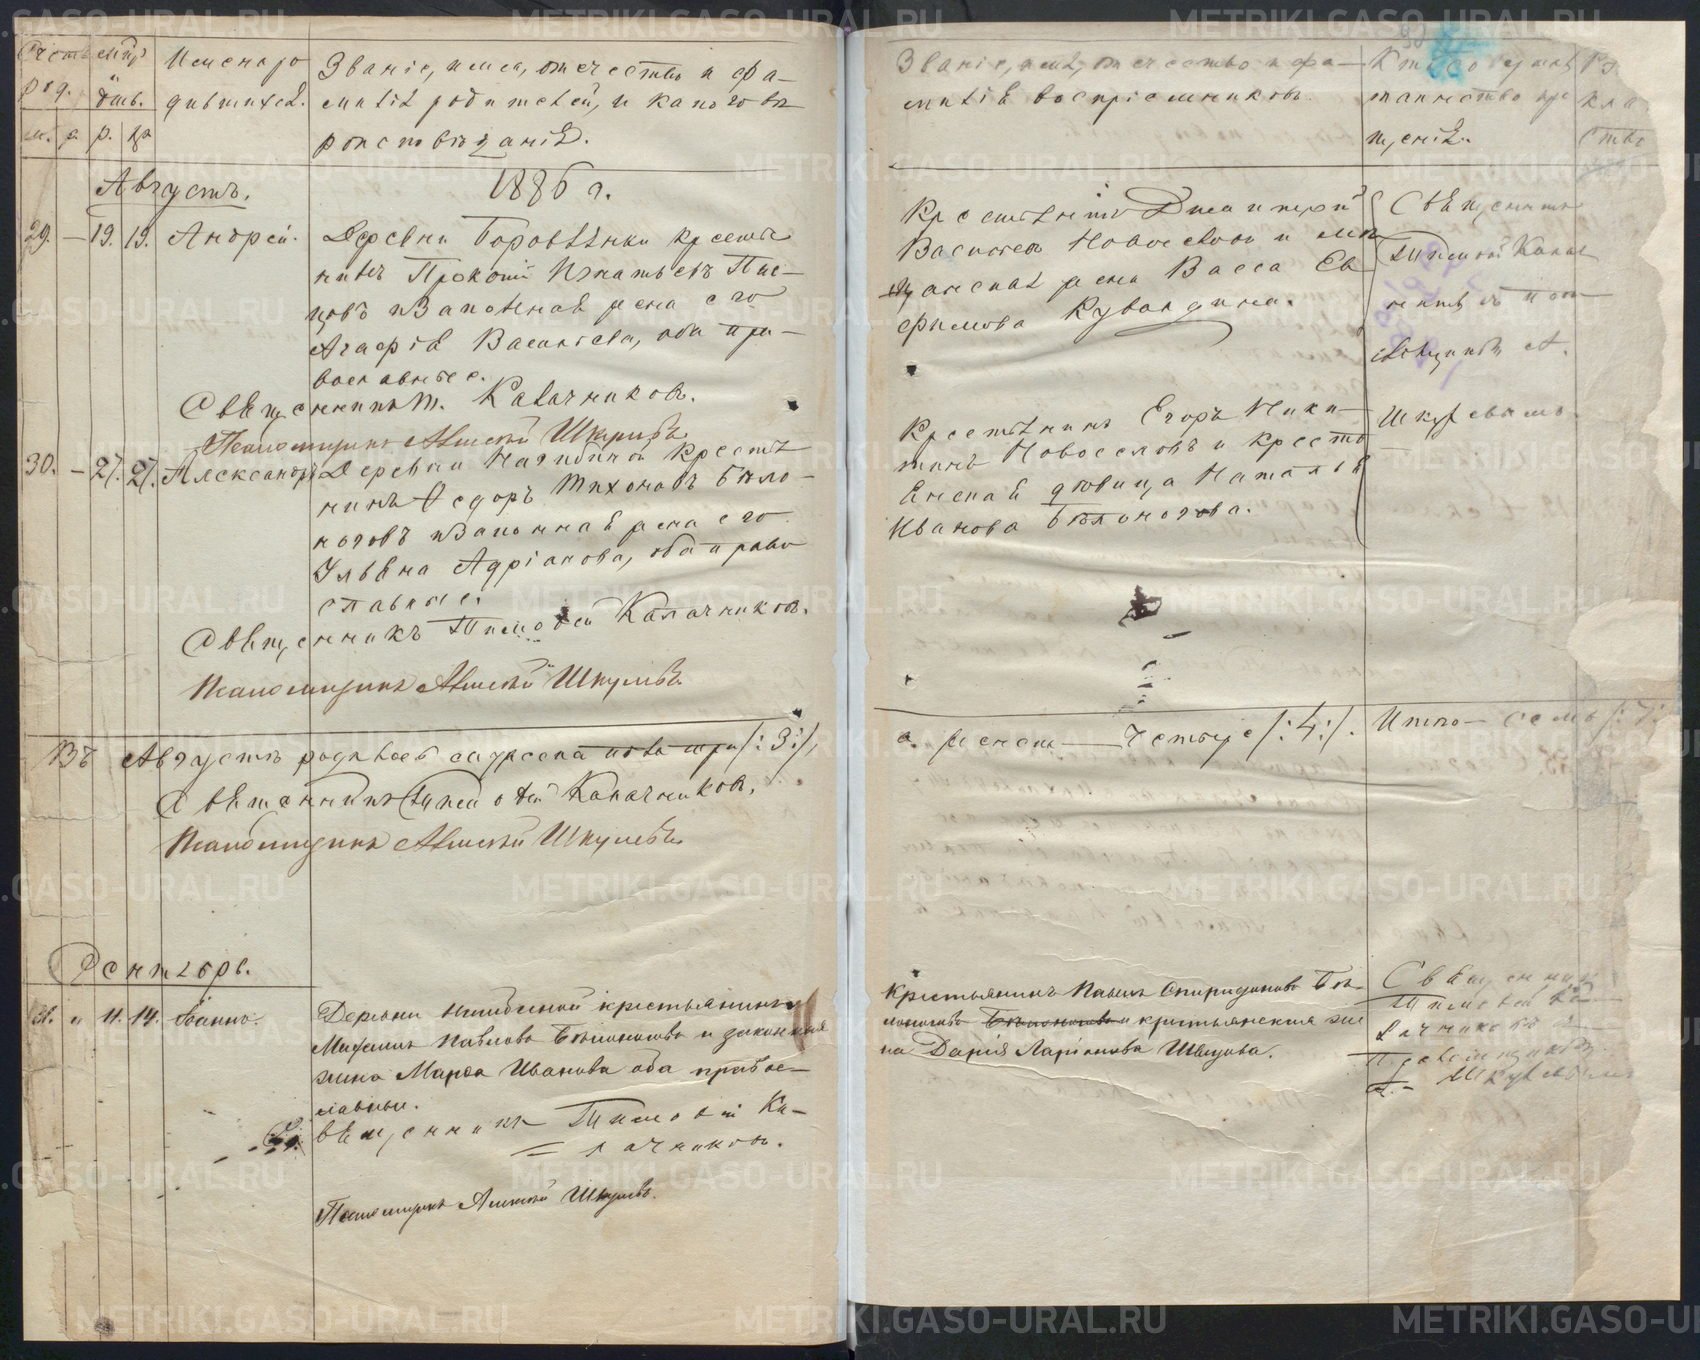 Счетъ Мѣс.
род. день.
м. ж. р. кр.
Имена ро
дившихся.
Званіе, имя, отчество и фа-
милія родителей, и какого вѣ
роисповѣданія.
Августъ. 1886 г.
29. — 19. 19. Андрей.
Деревни Боровлянки крестья
нинъ Прокопій Игнатьевъ Пис-
цовъ и Законная жена его
Агафія Васильева, оба пра-
вославные.
Священникъ Т. Калачниковъ.
Псаломщикъ Алексѣй Шкулевъ
30. — 27. 27. Александръ
Деревни Нагибиной Крестья
нинъ Ѳедоръ Тихоновъ Бѣло-
ноговъ и Законная жена его
Ульяна Адріанова, оба право
славные.
Священникъ Тимоѳей Калачниковъ.
Псаломщикъ Алексѣй Шкулевъ
Въ Августѣ родилось мужеска пола три /:3:/,
Священникъ Тимоѳей Калачниковъ,
Псаломщикъ Алексѣй Шкулевъ.
Сентябрь.
31. " 11. 14. Іоаннъ.
Деревни Нагибиной крестьянинъ
Павлова Бѣлоногова и законная
жена Марѳа Иванова оба право-
славные.
Священникъ Тимоѳей Ка-
лачниковъ.
Псаломщикъ Алексѣй Шкулевъ.
Званіе, имя, отчество и фа-
милія воспріемниковъ.
Кто совершалъ
таинство кре
щенія.
Крестьянинъ Димитрій
Васильевъ Новоселовъ и мѣ
щанская жена Васса Ев
фимова Кувандина.
Священникъ
Тимоѳей Калач
никовъ и пса
ломщикъ А.
Шкулевымъ.
Крестьянинъ Егоръ Ники
тинъ Новоселовъ и крестья
янская дѣвица Наталья
Иванова Бѣлоногова.
а женска — Четыре /:4:/. Итого — семь /:7:/
Крестьянинъ Павелъ Спиридоновъ Бѣ
лоноговъ Бѣлоноговъ и крестьянская же
на Дарія Ларіонова Швецова.
Священникъ
Тимоѳей Ка
лачниковъ и
Псаломщикъ
А. Шкулевымъ
METRIKI.GASO-URAL.RU